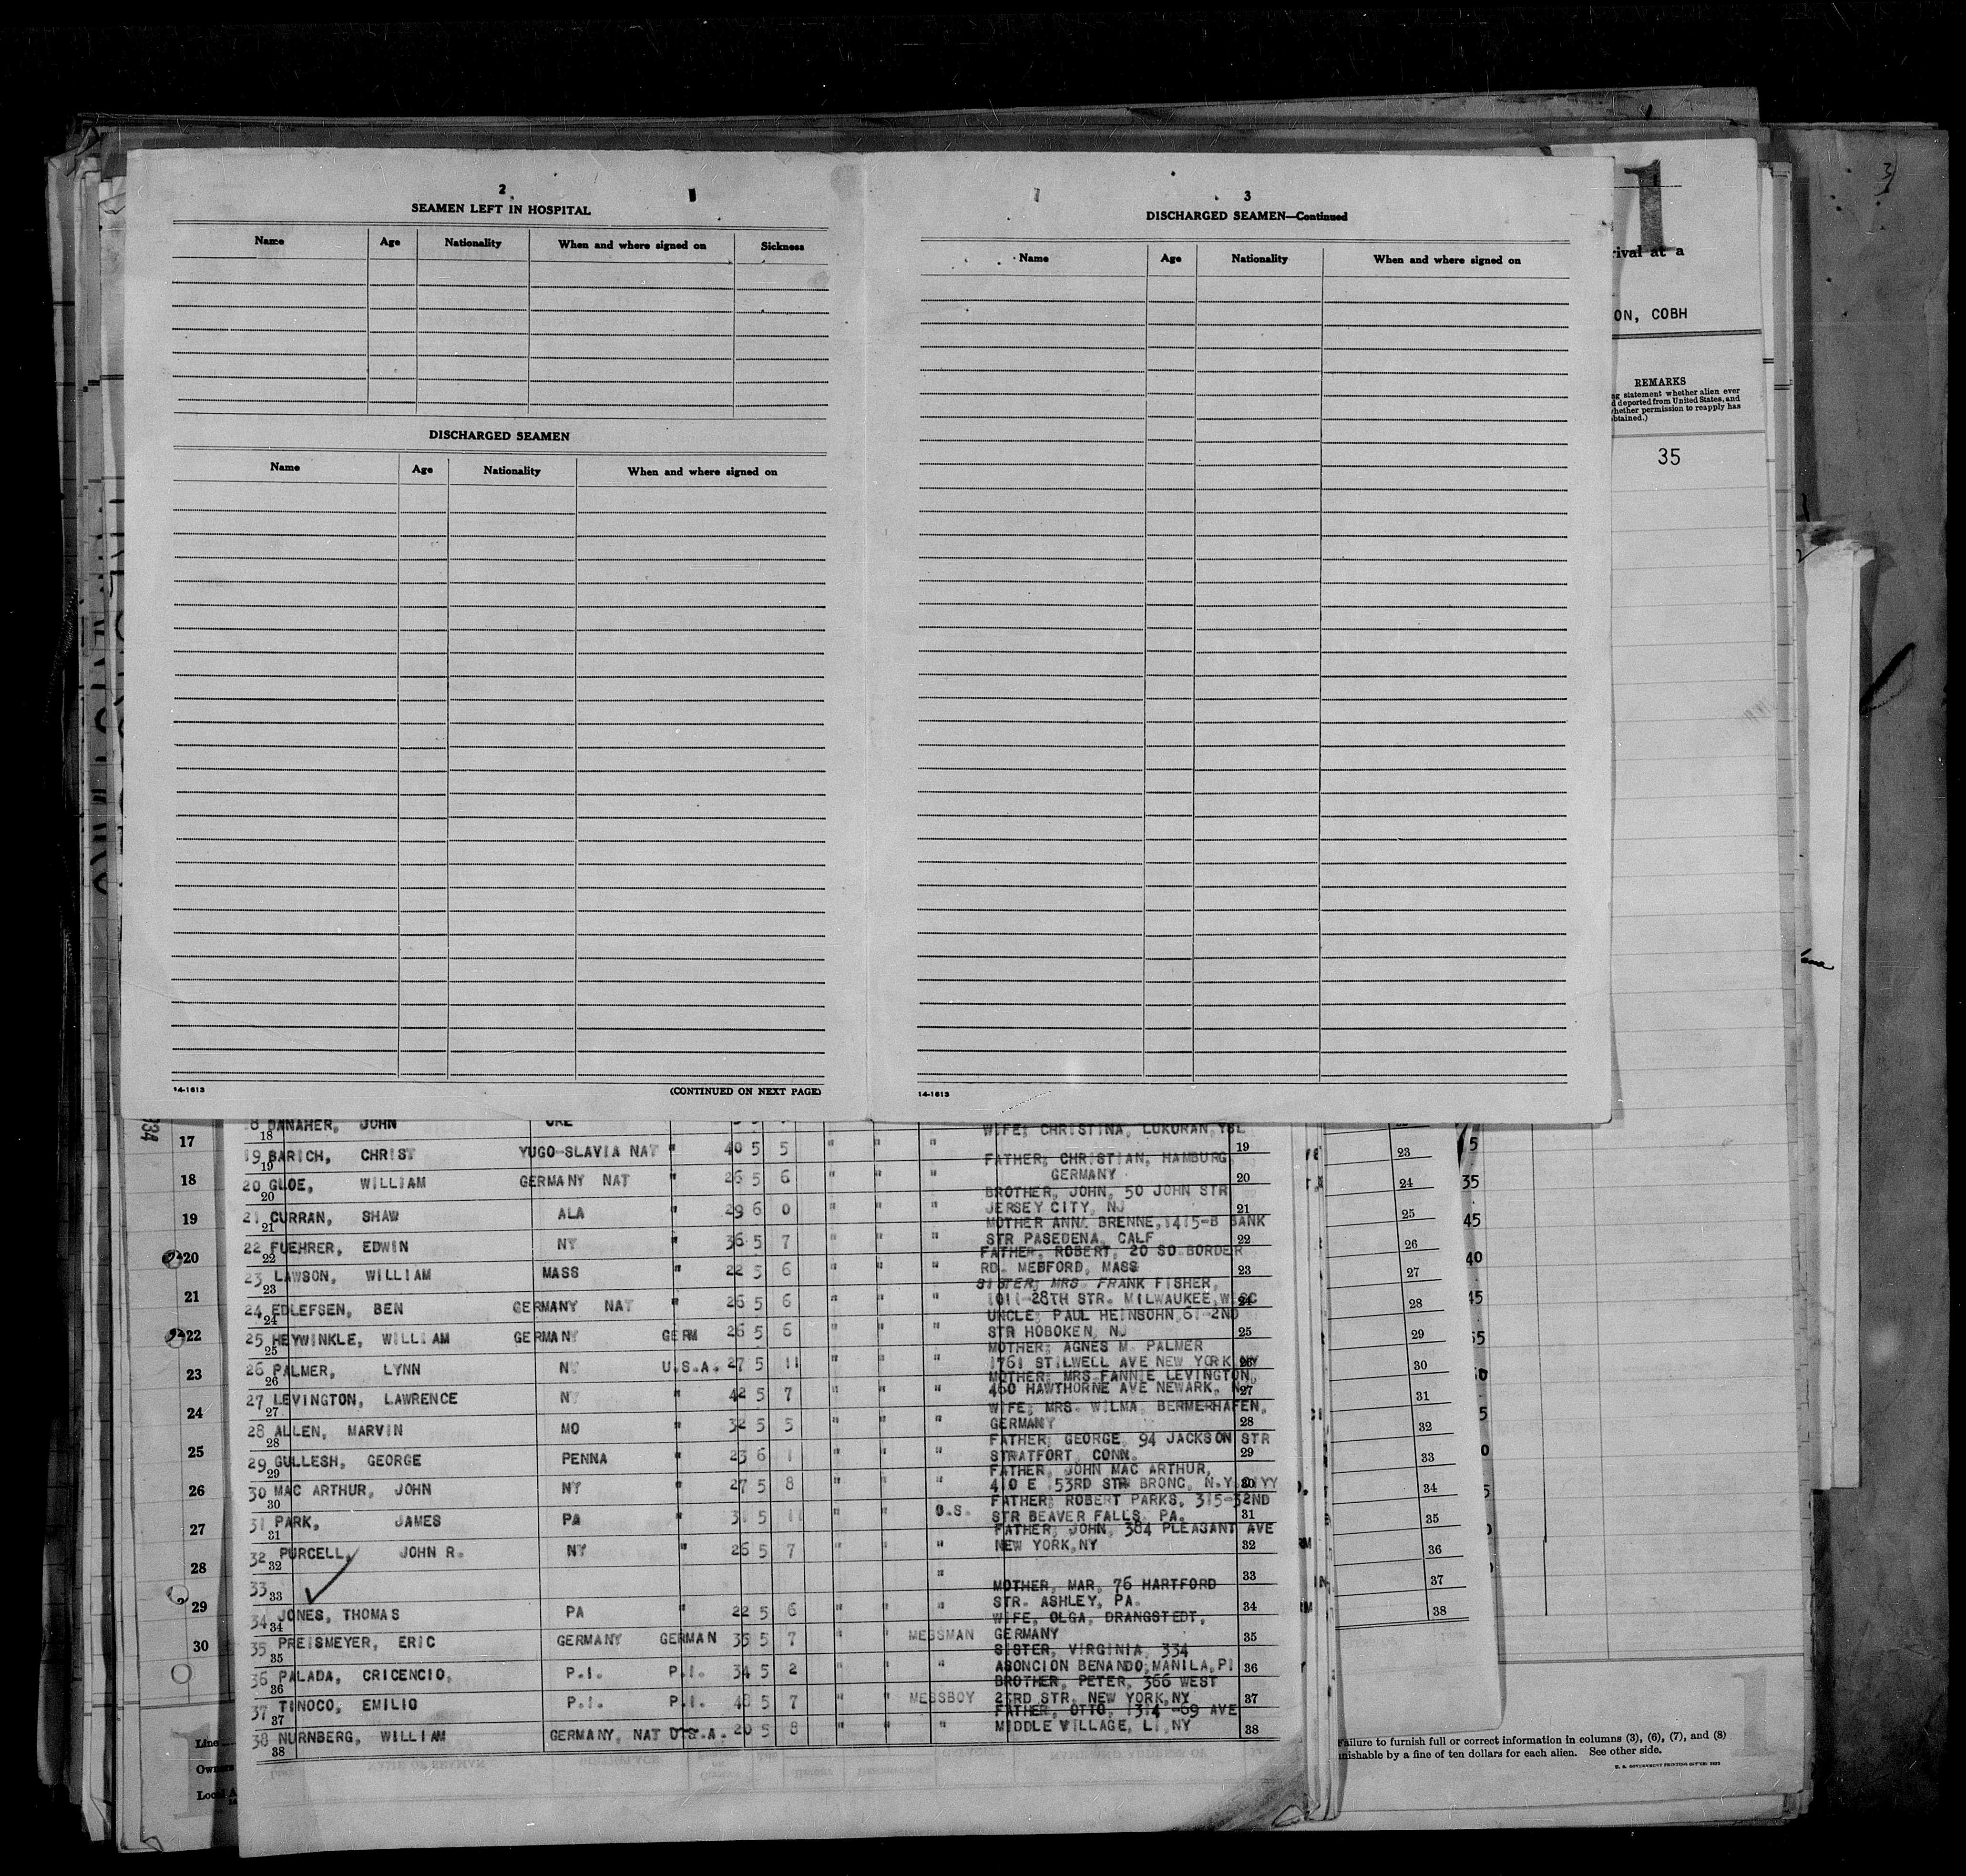 2
SEAMEN LEFT IN HOSPITAL
Name Age Nationality When and where signed on Sickness
DISCHARGED SEAMEN
Name Age Nationality When and where signed on
14-1613 (CONTINUED ON NEXT PAGE)
3
DISCHARGED SEAMEN—Continued
Name Age Nationality When and where signed on
14-1613
1
rival at a
ON, COBH
REMARKS
statement whether alien ever
deported from United States, and
whether permission to reapply has
obtained.)
35
8 DANAHER, JOHN
18
WIFE; CHRISTINA, LUKORAN,
19 BARICH, CHRIST YUGO-SLAVIA NAT " 40 5 5 " " " 19
19
FATHER; CHRISTIAN, HAMBURG
20 GLOE, WILLIAM GERMANY NAT " 26 5 6 " " " GERMANY 20
20
BROTHER, JOHN, 50 JOHN STR
21 CURRAN, SHAW ALA " 29 6 0 " " " JERSEY CITY, NJ 21
21
MOTHER ANNA BRENNE, 1415-B BANK
22 FUEHRER, EDWIN NY " 36 5 7 " " " STR PASEDENA, CALF 22
22
FATHER, ROBERT, 20 SO BORDER
23 LAWSON, WILLIAM MASS " 22 5 6 " " " RD. MEDFORD, MASS 23
23
SISTER; MRS. FRANK FISHER,
24 EDLEFSEN, BEN GERMANY NAT " 26 5 6 " " " 1011-28TH STR. MILWAUKEE, WISC 24
24
UNCLE; PAUL HEINSOHN, 61-2ND
25 HEYWINKLE, WILLIAM GERMANY GERM 26 5 6 " " " STR HOBOKEN, NJ 25
25
MOTHER; AGNES M. PALMER
26 PALMER, LYNN NY U.S.A. 27 5 11 " " " 1761 STILWELL AVE NEW YORK NY 26
26
MOTHER; MRS FANNIE LEVINGTON,
27 LEVINGTON, LAWRENCE NY " 42 5 7 " " " 460 HAWTHORNE AVE NEWARK, 27
27
WIFE; MRS. WILMA, BERMERHAFEN,
28 ALLEN, MARVIN MO " 32 5 5 " " " GERMANY 28
28
FATHER; GEORGE, 94 JACKSON STR
29 GULLESH, GEORGE PENNA " 23 6 1 " " " STRATFORT, CONN. 29
29
FATHER, JOHN MAC ARTHUR,
30 MAC ARTHUR, JOHN NY " 27 5 8 " " " 410 E 153RD STR BRONC, N.Y. 30
30
FATHER; ROBERT PARKS, 315-32ND
31 PARK, JAMES PA " 31 5 11 " " O.S. STR BEAVER FALLS, PA. 31
31
FATHER; JOHN, 384 PLEASANT AVE
32 PURCELL, JOHN R. NY " 26 5 7 " " " NEW YORK, NY 32
32
33 " 33
33
MOTHER, MAR, 76 HARTFORD
34 JONES, THOMAS PA " 22 5 6 " " " STR. ASHLEY, PA. 34
34
WIFE, OLGA, DRANGSTEDT,
35 PREISMEYER, ERIC GERMANY GERMAN 35 5 7 " " MESSMAN GERMANY 35
35
SISTER, VIRGINIA, 334
36 PALADA, CRICENCIO, P.I. P.I. 34 5 2 " " " ASONCION BENANDO, MANILA, PI 36
36
BROTHER, PETER, 366 WEST
37 TINOCO, EMILIO P.I. P.I. 48 5 7 " " MESSBOY 23RD STR. NEW YORK, NY 37
37
FATHER, OTTO, 1314-69 AVE
38 NURNBERG, WILLIAM GERMANY, NAT U.S.A. 20 5 8 " " " MIDDLE VILLAGE, LI, NY 38
38
17
18
19
20
21
22
23
24
25
26
27
28
29
30
Line
Owners
Local A
23
24
25
26
27
28
29
30
31
32
33
34
35
36
37
38
35
45
40
45
Failure to furnish full or correct information in columns (3), (6), (7), and (8)
punishable by a fine of ten dollars for each alien. See other side.
U. S. GOVERNMENT PRINTING OFFICE: